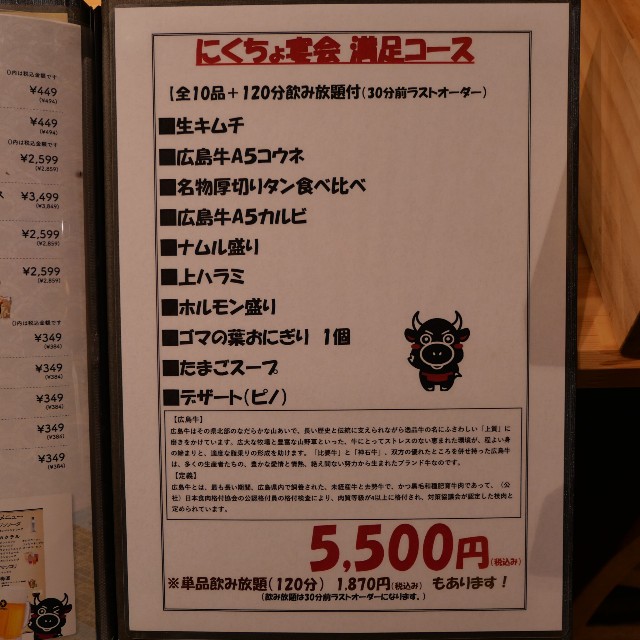 ()内は税込金額です
¥449
(¥494)
¥449
(¥494)
()内は税込金額です
¥2,599
(¥2,859)
¥3,499
(¥3,849)
¥2,599
(¥2,859)
¥2,599
(¥2,859)
()内は税込金額です
¥349
(¥384)
¥349
(¥384)
¥349
(¥384)
¥349
(¥384)
¥349
(¥384)
にくちょ宴会 満足コース
【全10品+120分飲み放題付(30分前ラストオーダー)
■生キムチ
■広島牛A5コウネ
■名物厚切りタン食べ比べ
■広島牛A5カルビ
■ナムル盛り
■上ハラミ
■ホルモン盛り
■ゴマの葉おにぎり 1個
■たまごスープ
■デザート(ピノ)
【広島牛】
広島牛はその県北部のなだらかな山あいで、長い歴史と伝統に支えられながら逸品牛の名にふさわしい「上質」に
磨きをかけています。広大な牧場と豊富な山野草といった、牛にとってストレスのない恵まれた環境が、程よい身
の締まりと、適度な脂乗りの形成を助けます。「比婆牛」と「神石牛」、双方の優れたところを併せ持った広島牛
は、多くの生産者たちの、豊かな愛情と情熱、絶え間ない努力から生まれたブランド牛なのです。
【定義】
広島牛とは、最も長い期間、広島県内で飼養された、未経産牛と去勢牛で、かつ黒毛和種肥育牛肉であって、(公
社)日本食肉格付協会の公認格付員の格付検査により、肉質等級が4以上に格付され、対策協議会が認定した枝肉と
定められています。
5,500円(税込み)
※単品飲み放題(120分) 1,870円(税込み) もあります!
(飲み放題は30分前ラストオーダーになります。)